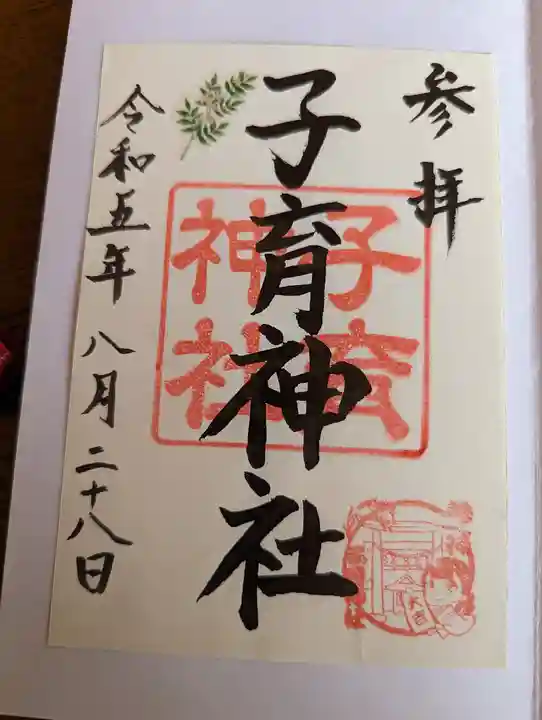 参拝
子育神社
子育
神社
令和五年八月二十八日
大吉